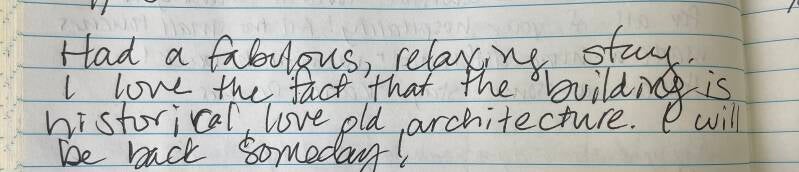 Had a fabulous, relaxing stay.
I love the fact that the building is
historical, love old architecture. I will
be back someday!